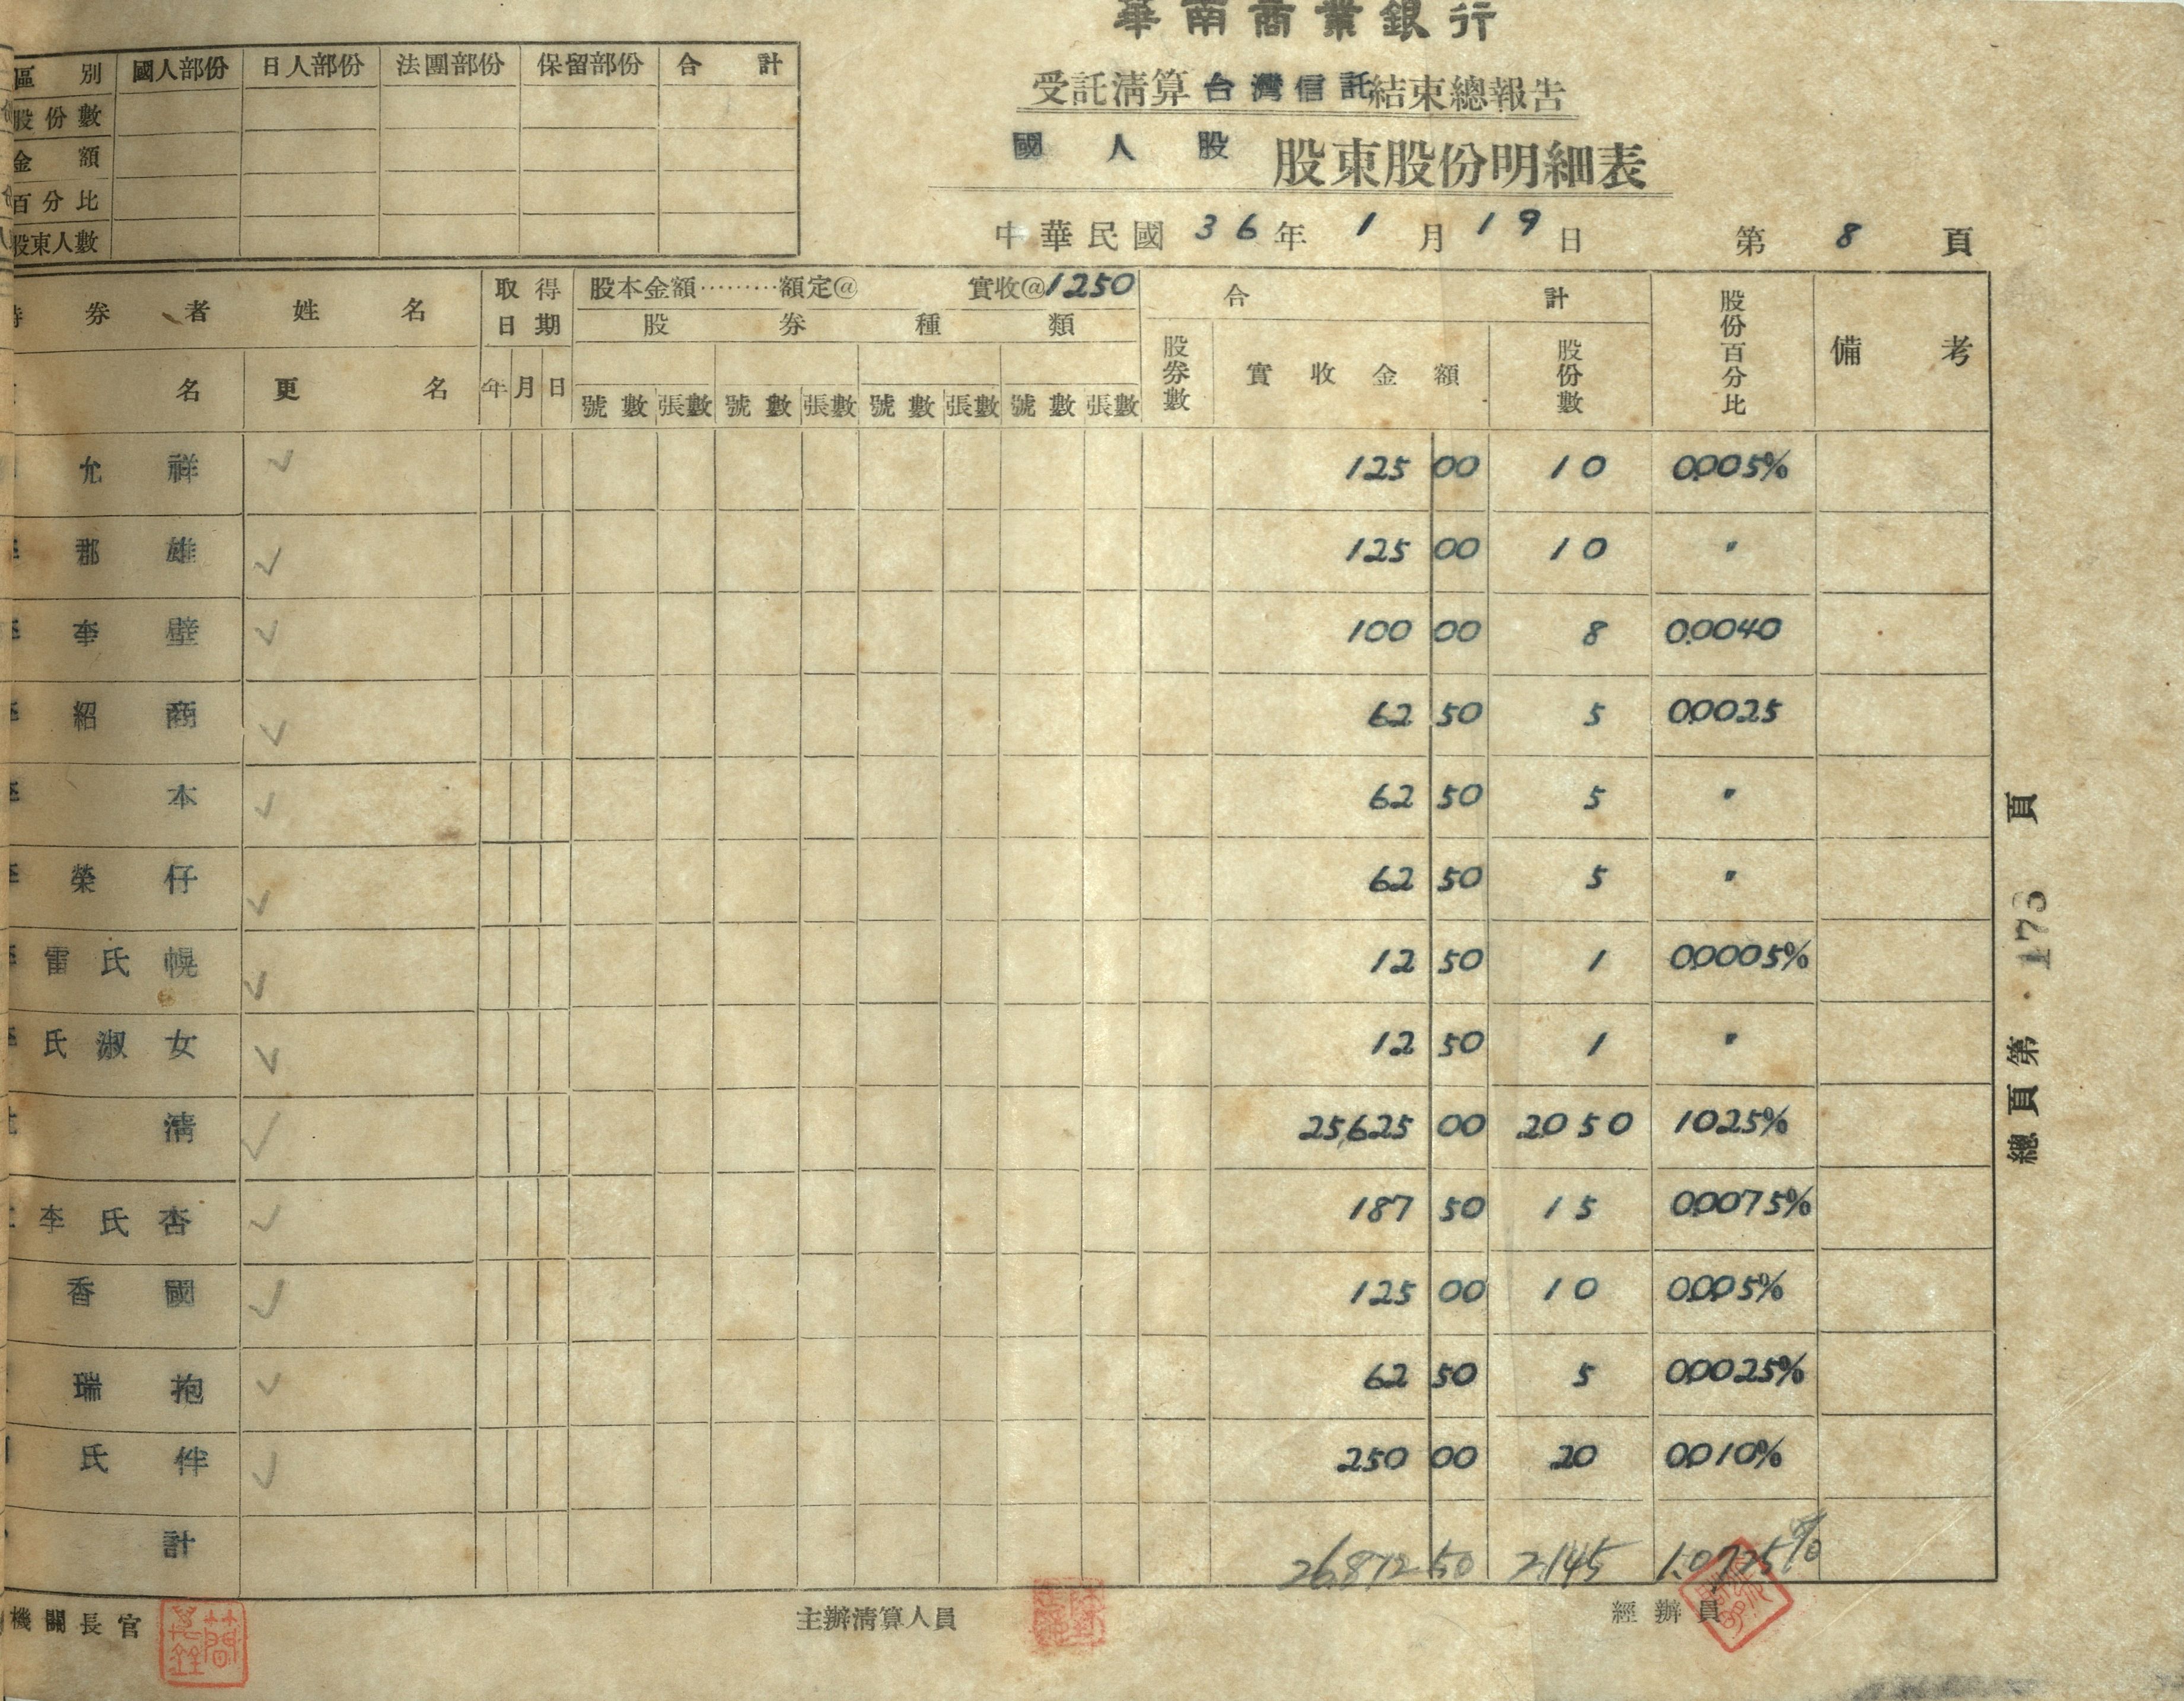 華南商業銀行
受託淸算台灣信託結束總報告
國人股 股東股份明細表
中華民國36年1月19日 第8頁
區別 國人部份 日人部份 法團部份 保留部份 合計
股份數
金額
百分比
股東人數
券者姓名 取得日期 股本金額………額定@ 實收@1250 合計 股份百分比 備考
股券種類
名 更名 年 月 日 號數 張數 號數 張數 號數 張數 號數 張數 股券數 實收金額 股份數
允祥 125 00 10 0.005%
郡雄 125 00 10 〃
李壁 100 00 8 0.0040
紹商 62 50 5 0.0025
本 62 50 5 〃
榮仔 62 50 5 〃
雷氏幌 12 50 1 0.0005%
氏淑女 12 50 1 〃
淸 25,625 00 2050 1025%
李氏杏 187 50 15 0.0075%
香國 125 00 10 0.005%
瑞抱 62 50 5 0.0025%
氏伴 250 00 20 0.010%
計 26,872 50 2,145 1.0725%
機關長官 主辦淸算人員 經辦員
總頁第173頁